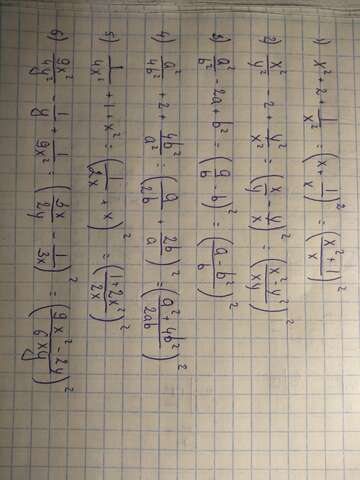 1) x² + 2 + 1/x² = (x + 1/x)² = ((x² + 1)/x)²
2) x²/y² - 2 + y²/x² = (x/y - y/x)² = ((x² - y²)/xy)²
3) a²/b² - 2a + b² = (a/b - b)² = ((a - b²)/b)²
4) a²/4b² + 2 + 4b²/a² = (a/2b + 2b/a)² = ((a² + 4b²)/2ab)²
5) 1/4x² + 1 + x² = (1/2x + x)² = ((1 + 2x²)/2x)²
6) 9x²/4y² - 1/y + 1/9x² = (3x/2y - 1/3x)² = ((9x² - 2y)/6xy)²